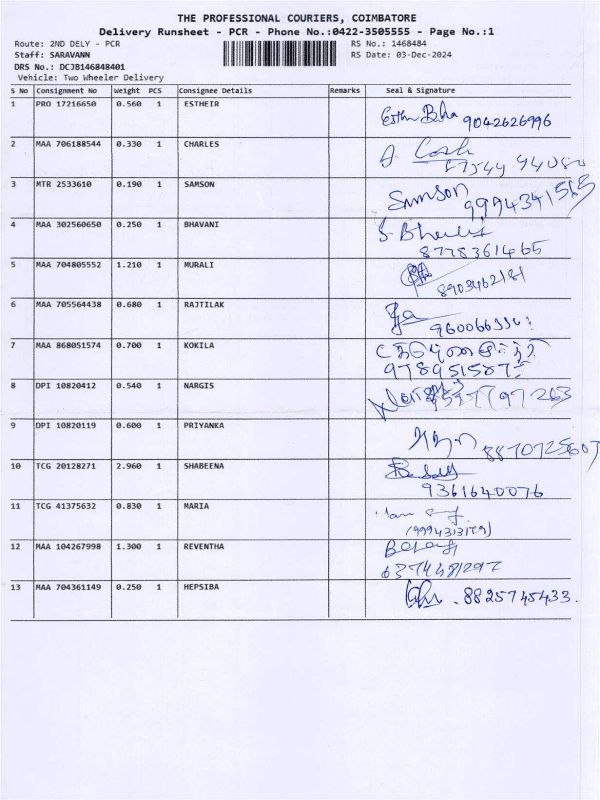 THE PROFESSIONAL COURIERS, COIMBATORE
Delivery Runsheet - PCR - Phone No.:0422-3505555 - Page No.:1
Route: 2ND DELY - PCR RS No.: 1468484
Staff: SARAVANN RS Date: 03-Dec-2024
DRS No.: DCJB146848401
Vehicle: Two Wheeler Delivery
S No Consignment No Weight PCS Consignee Details Remarks Seal & Signature
1 PRO 17216650 0.560 1 ESTHEIR
9042626996
2 MAA 706188544 0.330 1 CHARLES
3 MTR 2533610 0.190 1 SAMSON Samson
9994341565
4 MAA 302560650 0.250 1 BHAVANI
8778361465
5 MAA 704805552 1.210 1 MURALI
8903462181
6 MAA 705564438 0.680 1 RAJTILAK
7 MAA 868051574 0.700 1 KOKILA
8 DPI 10820412 0.540 1 NARGIS
9 DPI 10820119 0.600 1 PRIYANKA
8870725607
10 TCG 20128271 2.960 1 SHABEENA
9361640076
11 TCG 41375632 0.830 1 MARIA
12 MAA 104267998 1.300 1 REVENTHA
6374481297
13 MAA 704361149 0.250 1 HEPSIBA 8825745433